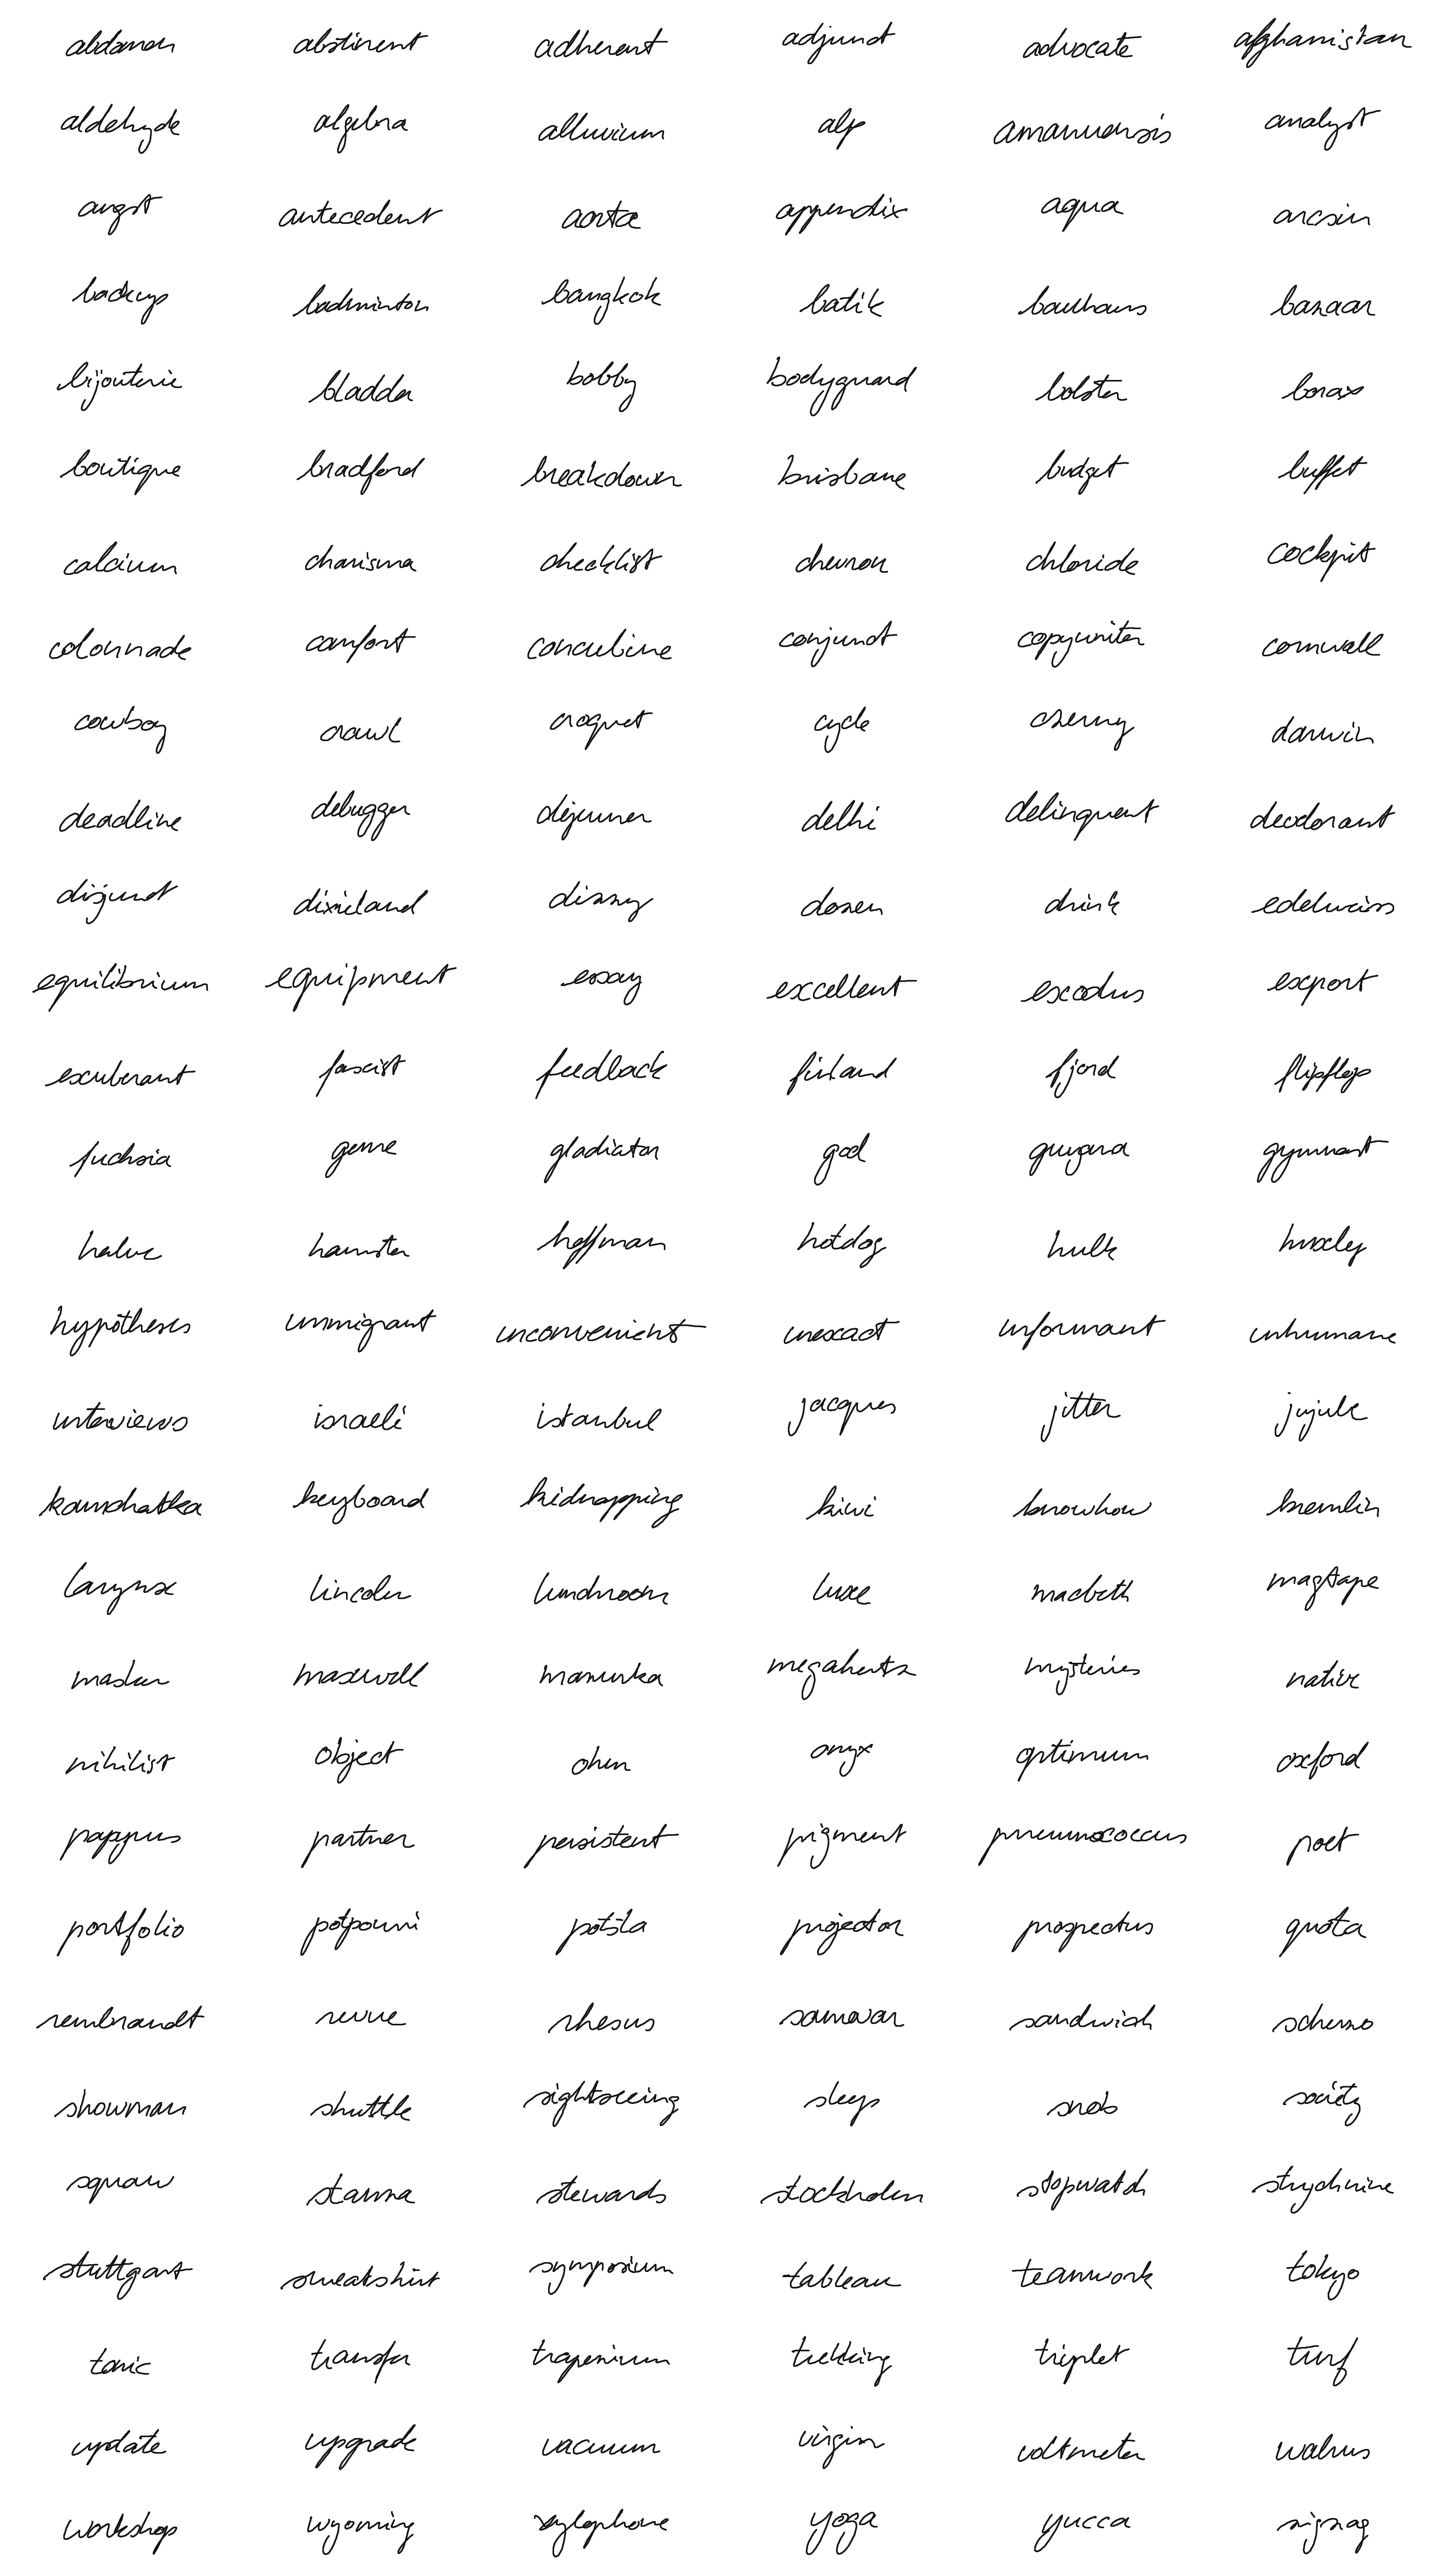 abdomen abstinent adherent adjunct advocate afghanistan
aldehyde algebra alluvium alp amanuensis analyst
angst antecedent aorta appendix aqua arcsin
backup badminton bangkok batik bauhaus bazaar
bijouterie bladder bobby bodyguard bolster borax
boutique bradford breakdown brisbane budget buffet
calcium charisma checklist chevron chloride cockpit
colonnade comfort concubine conjunct copywriter cornwall
cowboy crawl croquet cycle czerny darwin
deadline debugger dejeuner delhi delinquent deodorant
disjunct dixieland dizzy dozen drink edelweiss
equilibrium equipment essay excellent exodus export
exuberant fascist feedback finland fjord flipflop
fuchsia genre gladiator god guyana gymnast
halve hamster hoffman hotdog hulk huxley
hypotheses immigrant inconvenient inexact informant inhumane
interviews israeli istanbul jacques jitter jujube
kamchatka keyboard kidnapping kiwi knowhow kremlin
larynx lincoln lunchroom luxe macbeth magtape
maslen maxwell mazurka megahertz mysteries native
nihilist object ohm onyx optimum oxford
pappus partner persistent pigment pneumococcus poet
portfolio potpourri potsta projector prospectus quota
rembrandt revue rhesus samovar sandwich scherzo
showman shuttle sightseeing sleep snob society
squaw stanza stewards stockholm stopwatch strychnine
stuttgart sweatshirt symposium tableau teamwork tokyo
toxic transfer trapezium trekking triplet turf
update upgrade vacuum virgin voltmeter walrus
workshop wyoming xylophone yoga yucca zigzag